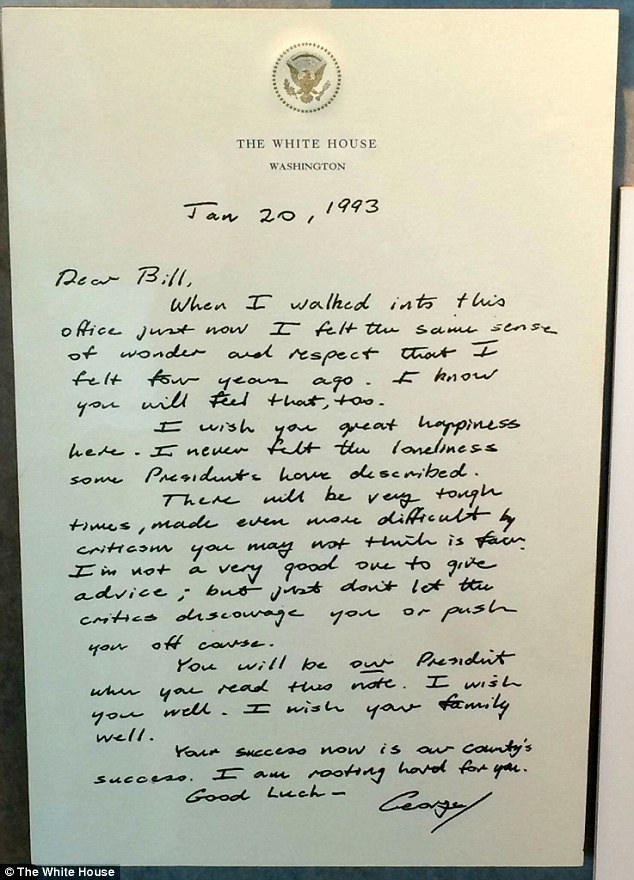 THE WHITE HOUSE
WASHINGTON
Jan 20, 1993
Dear Bill,
When I walked into this
office just now I felt the same sense
of wonder and respect that I
felt four years ago. I know
you will feel that, too.
I wish you great happiness
here. I never felt the loneliness
some Presidents have described.
There will be very tough
times, made even more difficult by
criticism you may not think is fair.
I'm not a very good one to give
advice; but just don't let the
critics discourage you or push
you off course.
You will be our President
when you read this note. I wish
you well. I wish your family
well.
Your success now is our county's
success. I am rooting hard for you.
Good Luck —
George
© The White House